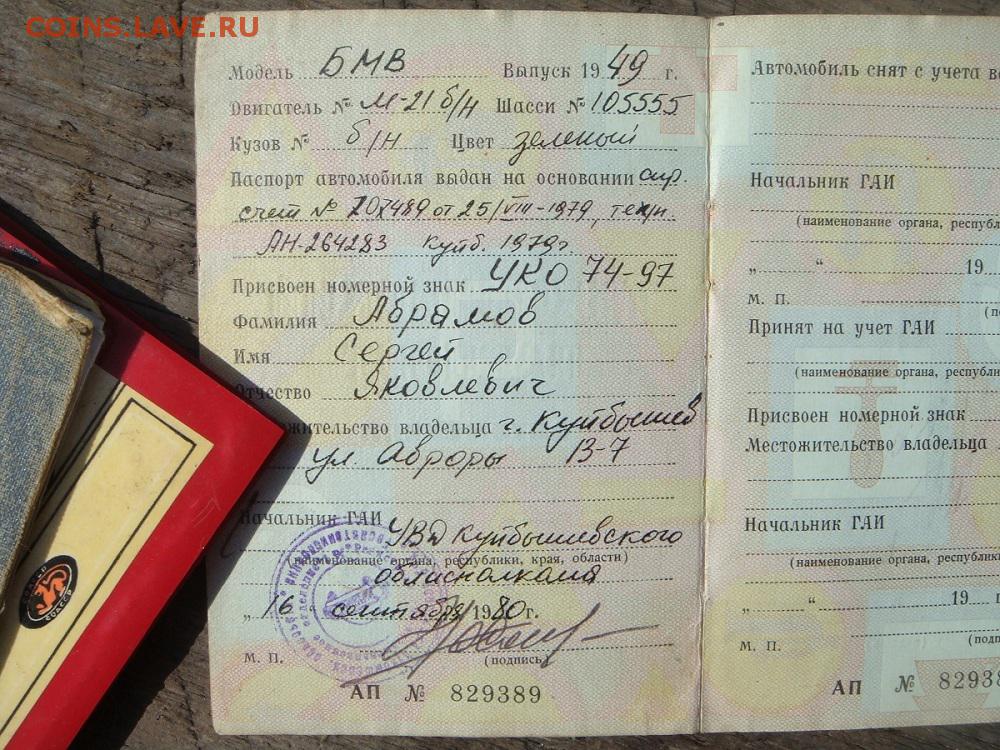 COINS.LAVE.RU
Модель БМВ Выпуск 1949 г.
Двигатель № М-21 б/н Шасси № 105555
Кузов № б/н Цвет зеленый
Паспорт автомобиля выдан на основании спр.
счет № 707489 от 25/VIII-1979, техп.
АН-264283 куйб. 1979г
Присвоен номерной знак УКО 74-97
Фамилия Абрамов
Имя Сергей
Отчество Яковлевич
жительство владельца г. Куйбышев
ул. Авроры 13-7
Начальник ГАИ УВД Куйбышевского
(наименование органа, республики, края, области)
облисполкома
„ 16 “ сентября 1980 г.
М. П. (подпись)
АП № 829389
Автомобиль снят с учета в
Начальник ГАИ
(наименование органа, республи
„ “ 19
М. П. (по
Принят на учет ГАИ
(наименование органа, республи
Присвоен номерной знак
Местожительство владельца
Начальник ГАИ
(наименование органа, республики
„ “ 19 г
М. П. (подп
АП № 82938